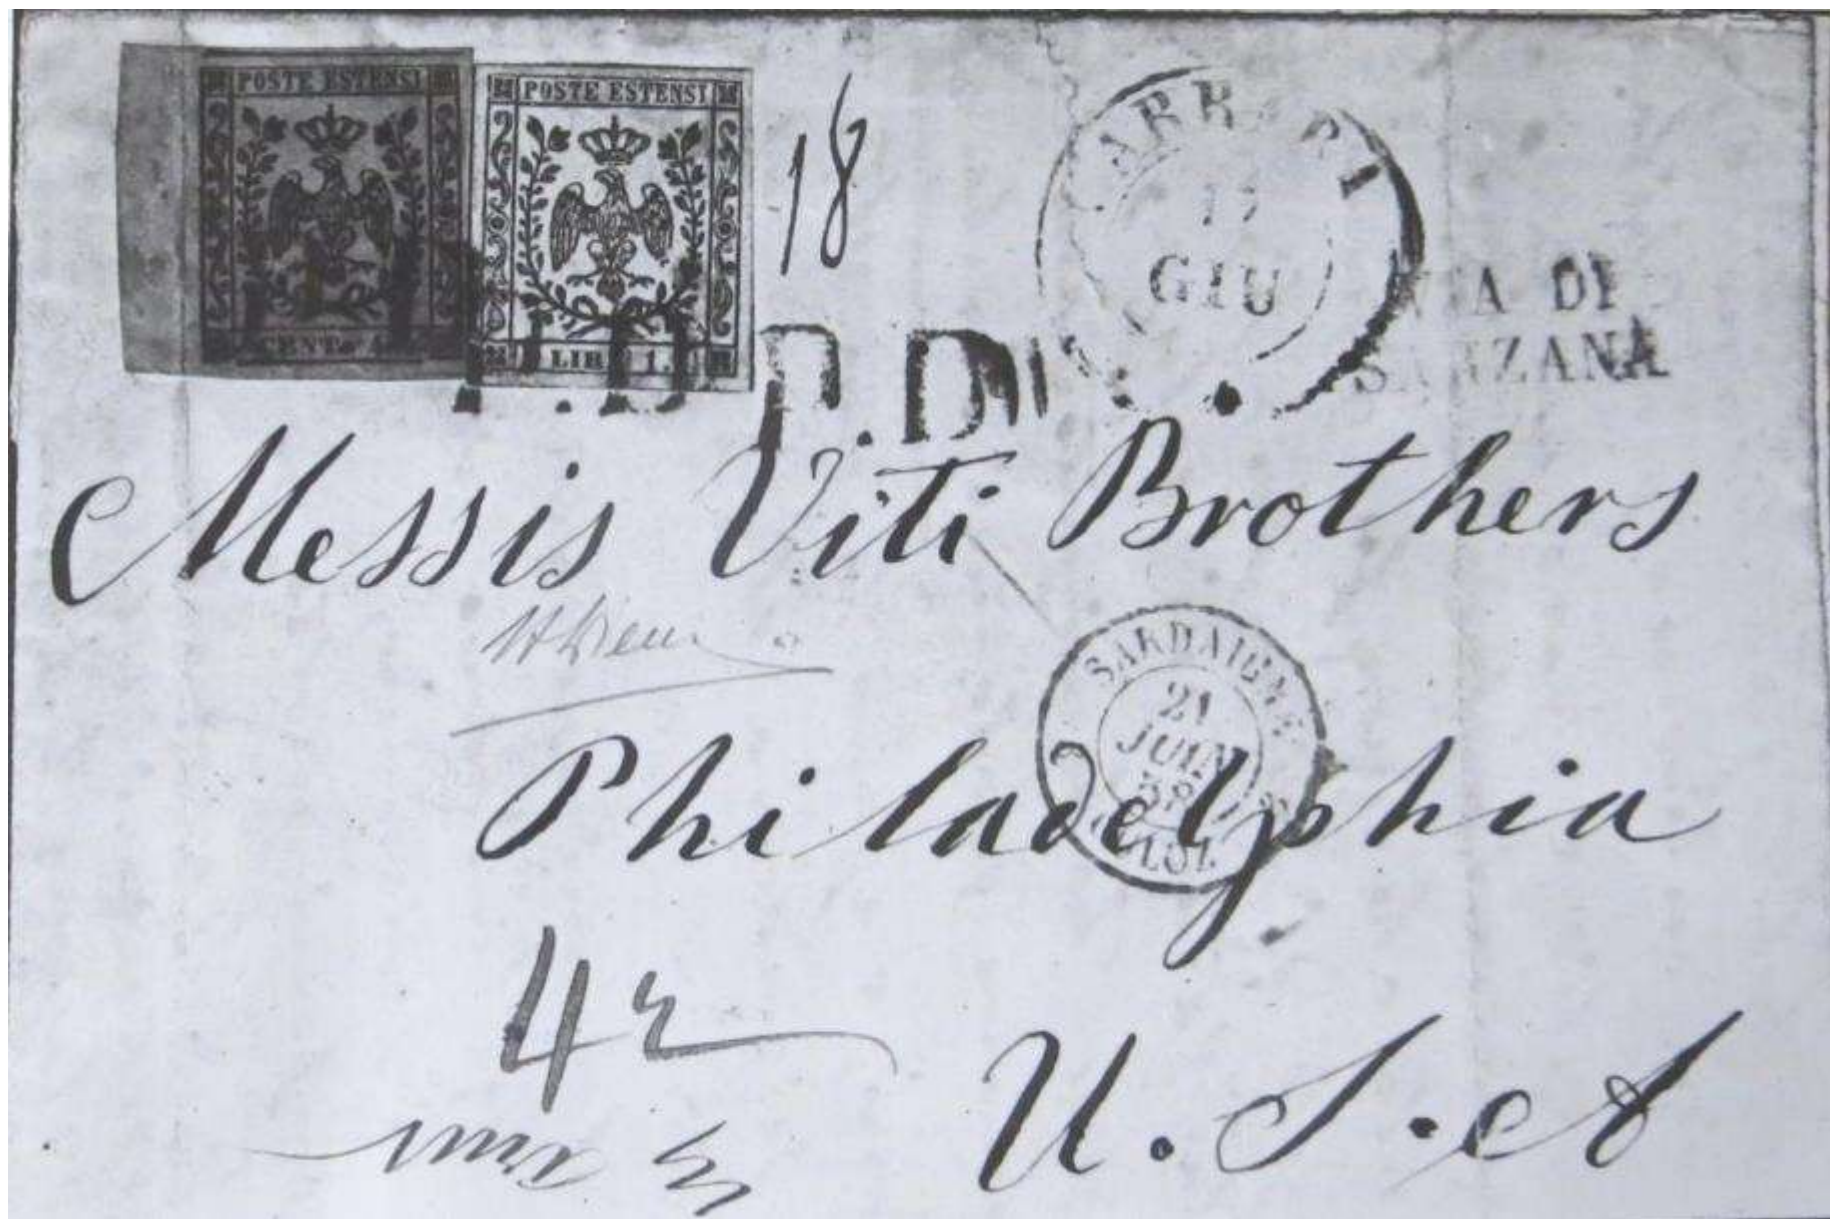 POSTE ESTENSI
POSTE ESTENSI
CENT.
LIRA 1.
18
CARRARA
17
GIU
VIA DI
SARZANA
P.D.
P.D.
Messrs Viti Brothers
SARDAIGNE
21
JUIN
58
CULOZ
Philadelphia
42
U.S.A